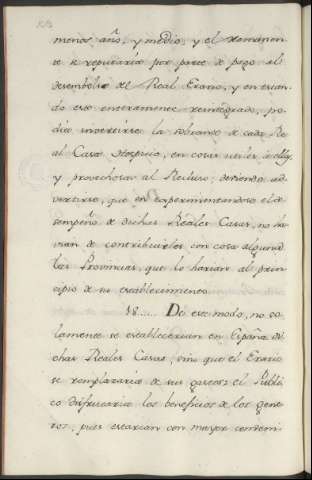 menos año, y medio, y el remanen
te se reputaria por parte de pago al
desembolso del Real Erario, y en estan
do este enteramente reintegrado, po
dia invertirse la sobrante de cada Re
al Casa Hospicio, en cosas utiles à ella,
y provechosas al Recluso; deviendo ad
vertirse, que en experimentandose el de
sempeño de dichas Reales Casas, no ha
vian de contribuirles con cosa alguna
las Provincias, que lo harian al prin
cipio de su establecimiento.
18..... De este modo, no so
lamente se establecerian en España di
chas Reales Casas, sino que el Erario
se remplazaria de sus gastos: el Publi
co disfrutaria los beneficios de los gene
ros; pues estarian con mayor condeni-